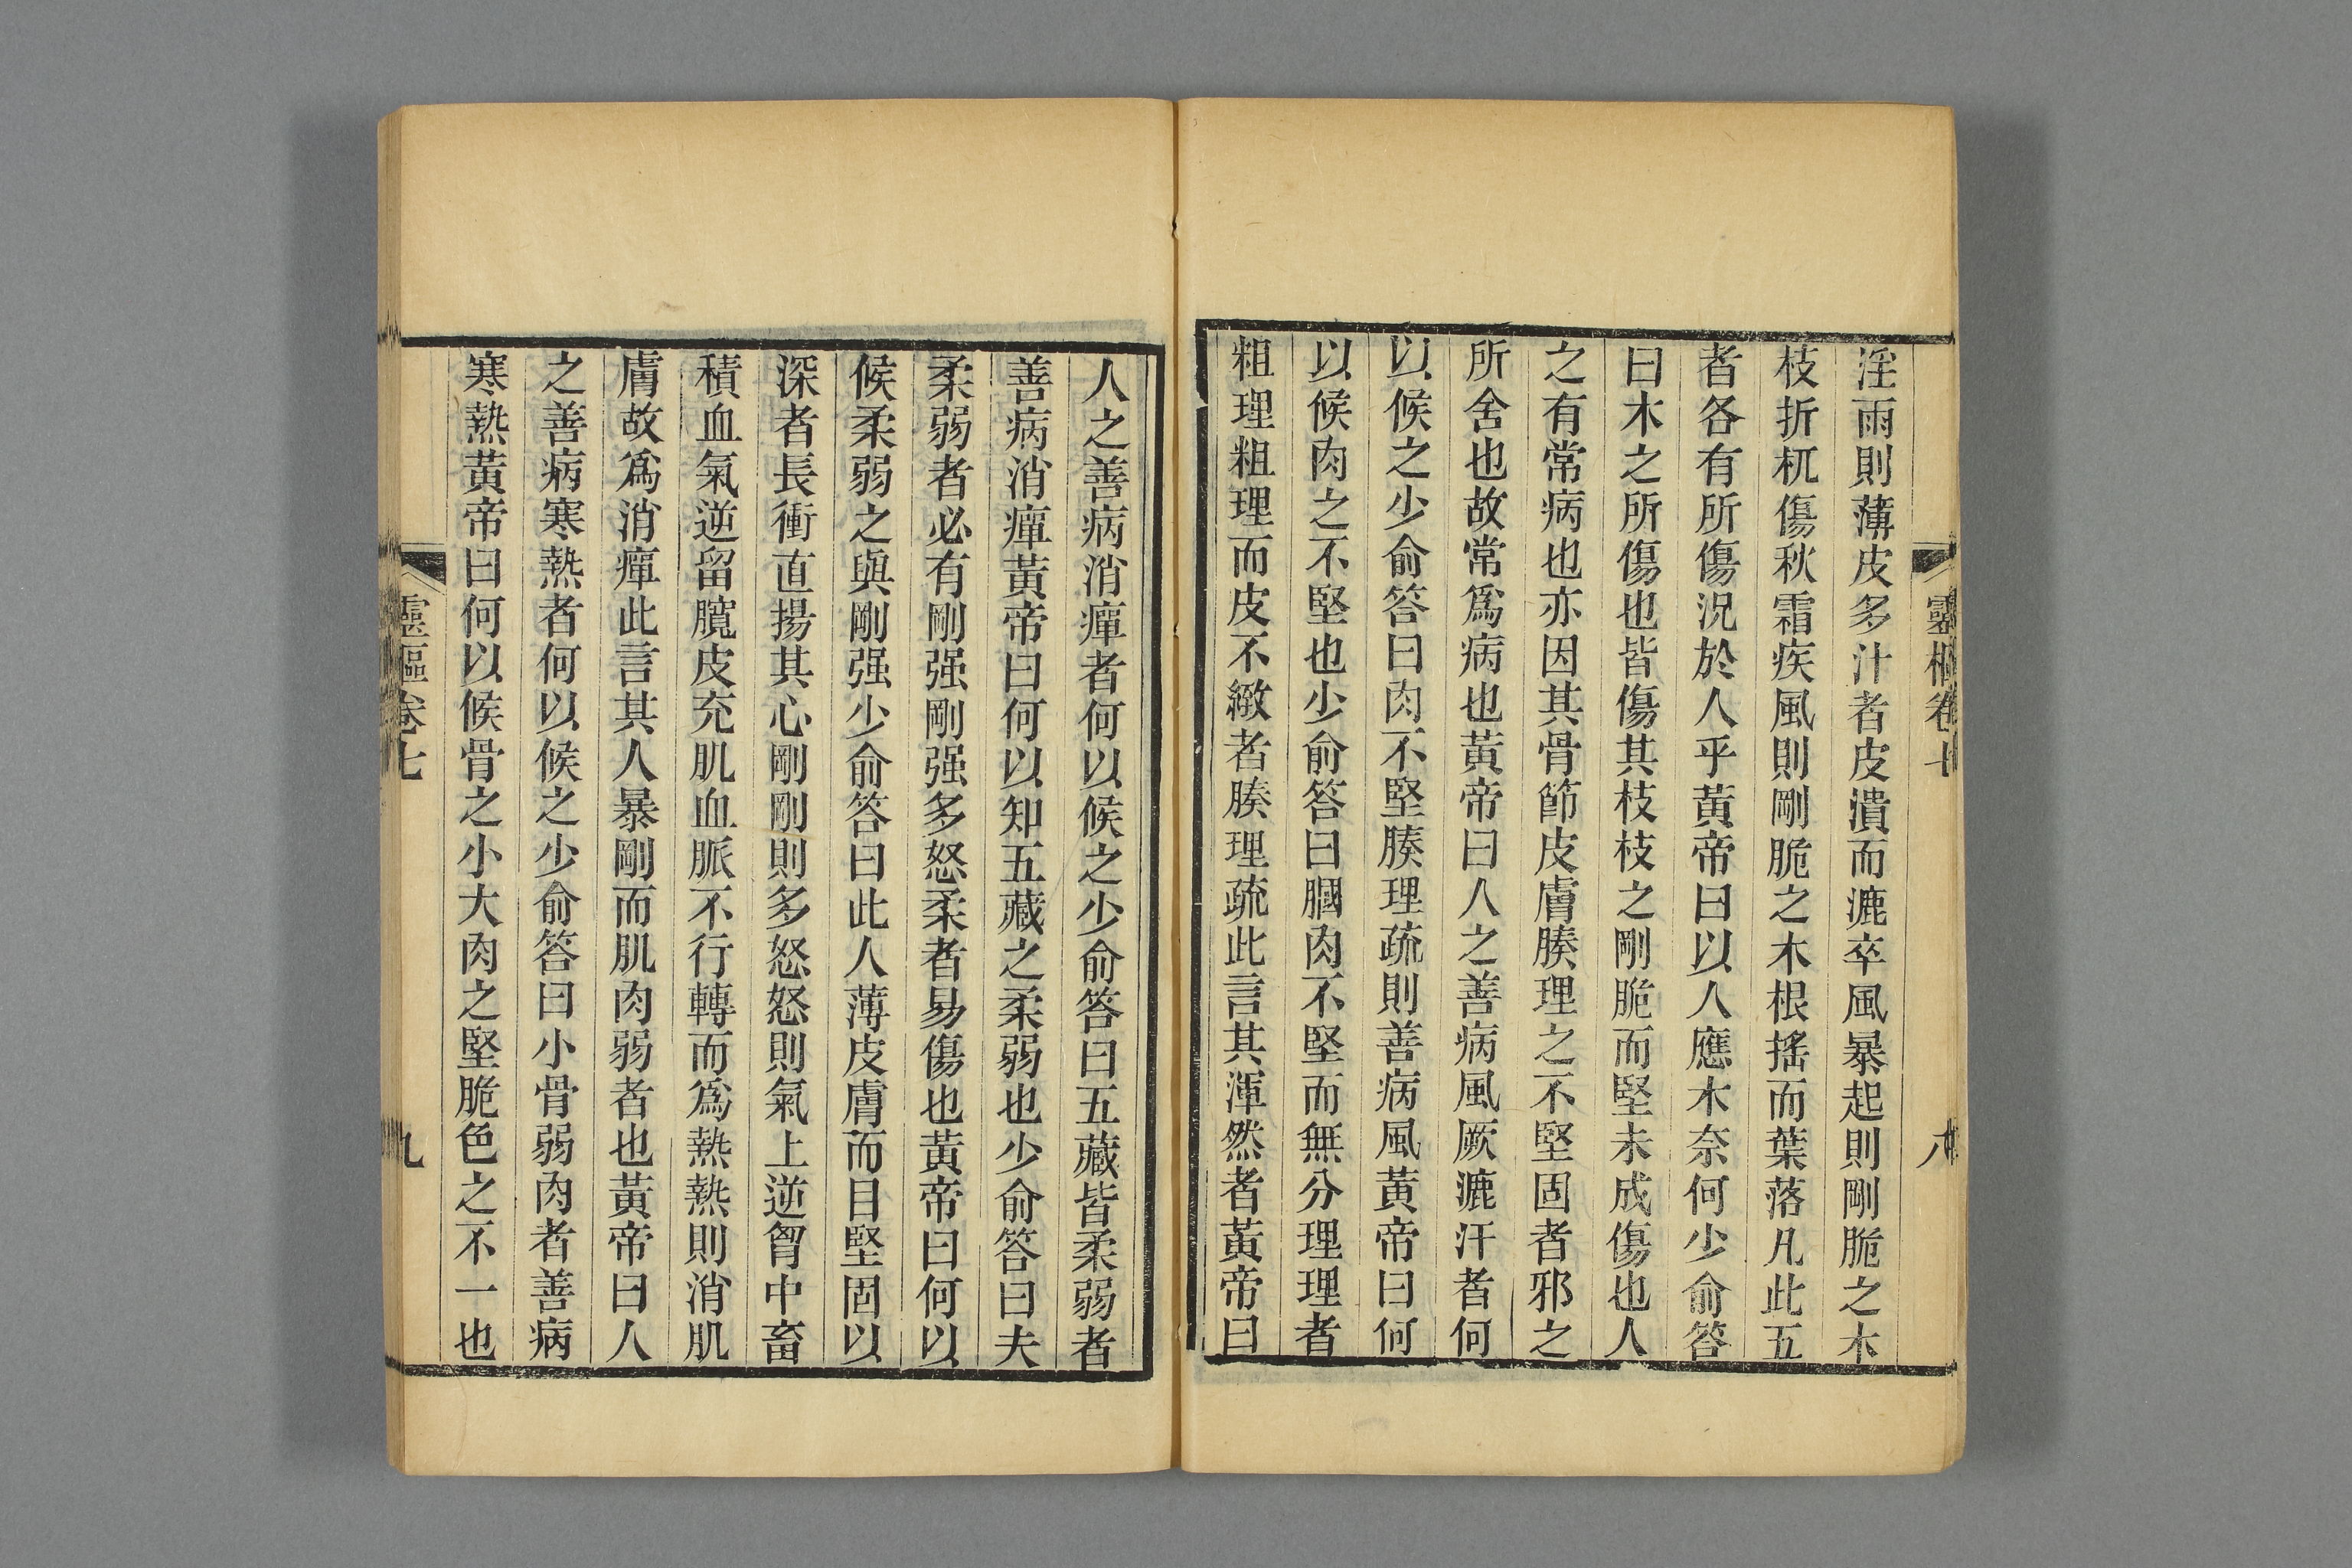 靈樞卷七
八
淫雨則薄皮多汁者皮潰而漉卒風暴起則剛脆之木
枝折杌傷秋霜疾風則剛脆之木根搖而葉落凡此五
者各有所傷況於人乎黃帝曰以人應木奈何少俞答
曰木之所傷也皆傷其枝枝之剛脆而堅未成傷也人
之有常病也亦因其骨節皮膚腠理之不堅固者邪之
所舍也故常爲病也黃帝曰人之善病風厥漉汗者何
以候之少俞答曰肉不堅腠理疏則善病風黃帝曰何
以候肉之不堅也少俞答曰膕肉不堅而無分理理者
粗理粗理而皮不緻者腠理疏此言其渾然者黃帝曰
人之善病消癉者何以候之少俞答曰五藏皆柔弱者
善病消癉黃帝曰何以知五藏之柔弱也少俞答曰夫
柔弱者必有剛强剛强多怒柔者易傷也黃帝曰何以
候柔弱之與剛强少俞答曰此人薄皮膚而目堅固以
深者長衝直揚其心剛剛則多怒怒則氣上逆胷中畜
積血氣逆留臗皮充肌血脈不行轉而爲熱熱則消肌
膚故爲消癉此言其人暴剛而肌肉弱者也黃帝曰人
之善病寒熱者何以候之少俞答曰小骨弱肉者善病
寒熱黃帝曰何以候骨之小大肉之堅脆色之不一也
靈樞卷七
九